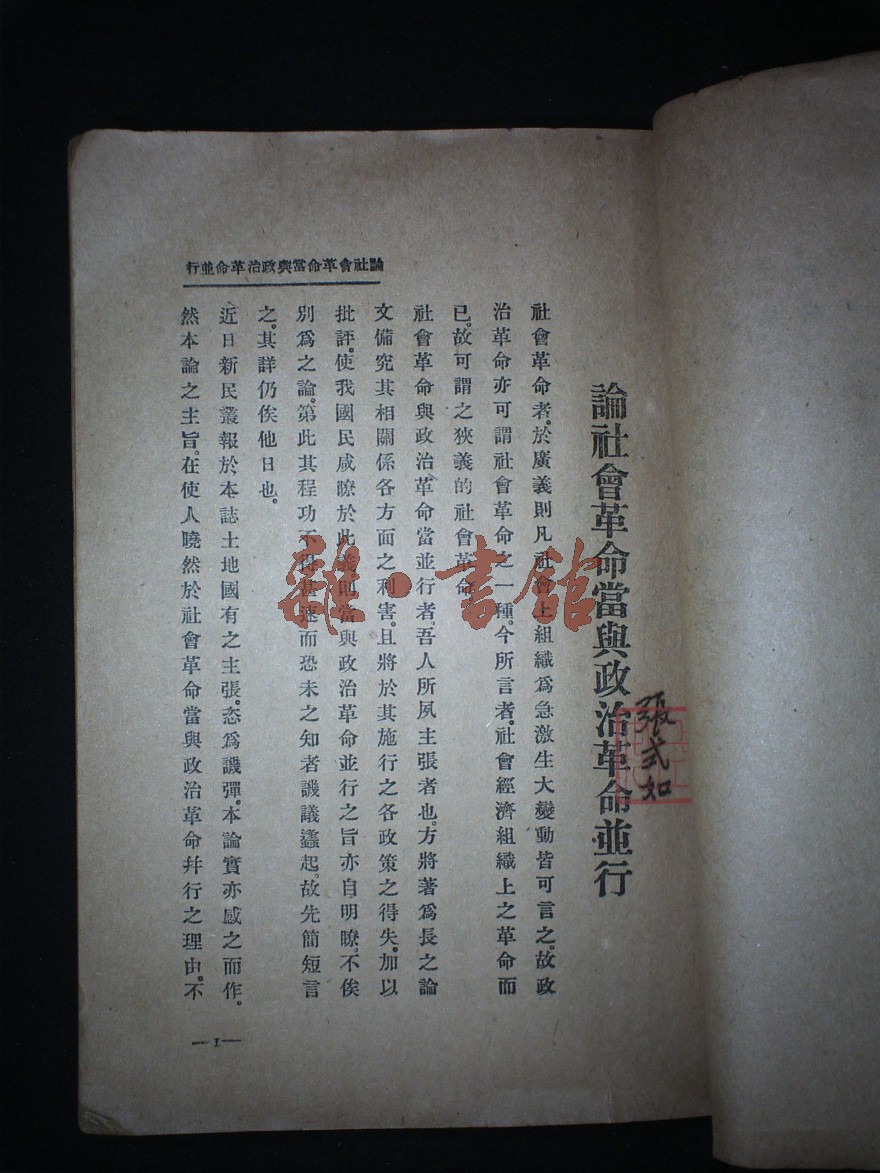 論社會革命當與政治革命並行
論社會革命當與政治革命並行
張式如
社會革命者。於廣義則凡社會上組織爲急激生大變動皆可言之。故政
治革命亦可謂社會革命之一種。今所言者。社會經濟組織上之革命而
已。故可謂之狹義的社會革命。
社會革命與政治革命當並行者。吾人所夙主張者也。方將著爲長之論
文備究其相關係各方面之利害。且將於其施行之各政策之得失。加以
批評。使我國民咸瞭於此義則當與政治革命並行之旨亦自明瞭。不俟
別爲之論。第此其程功不得甚速而恐未之知者譏議蠭起。故先簡短言
之。其詳仍俟他日也。
近日新民叢報於本誌土地國有之主張。恣爲譏彈。本論實亦感之而作。
然本論之主旨。在使人曉然於社會革命當與政治革命并行之理由。不
—1—
雜·書館